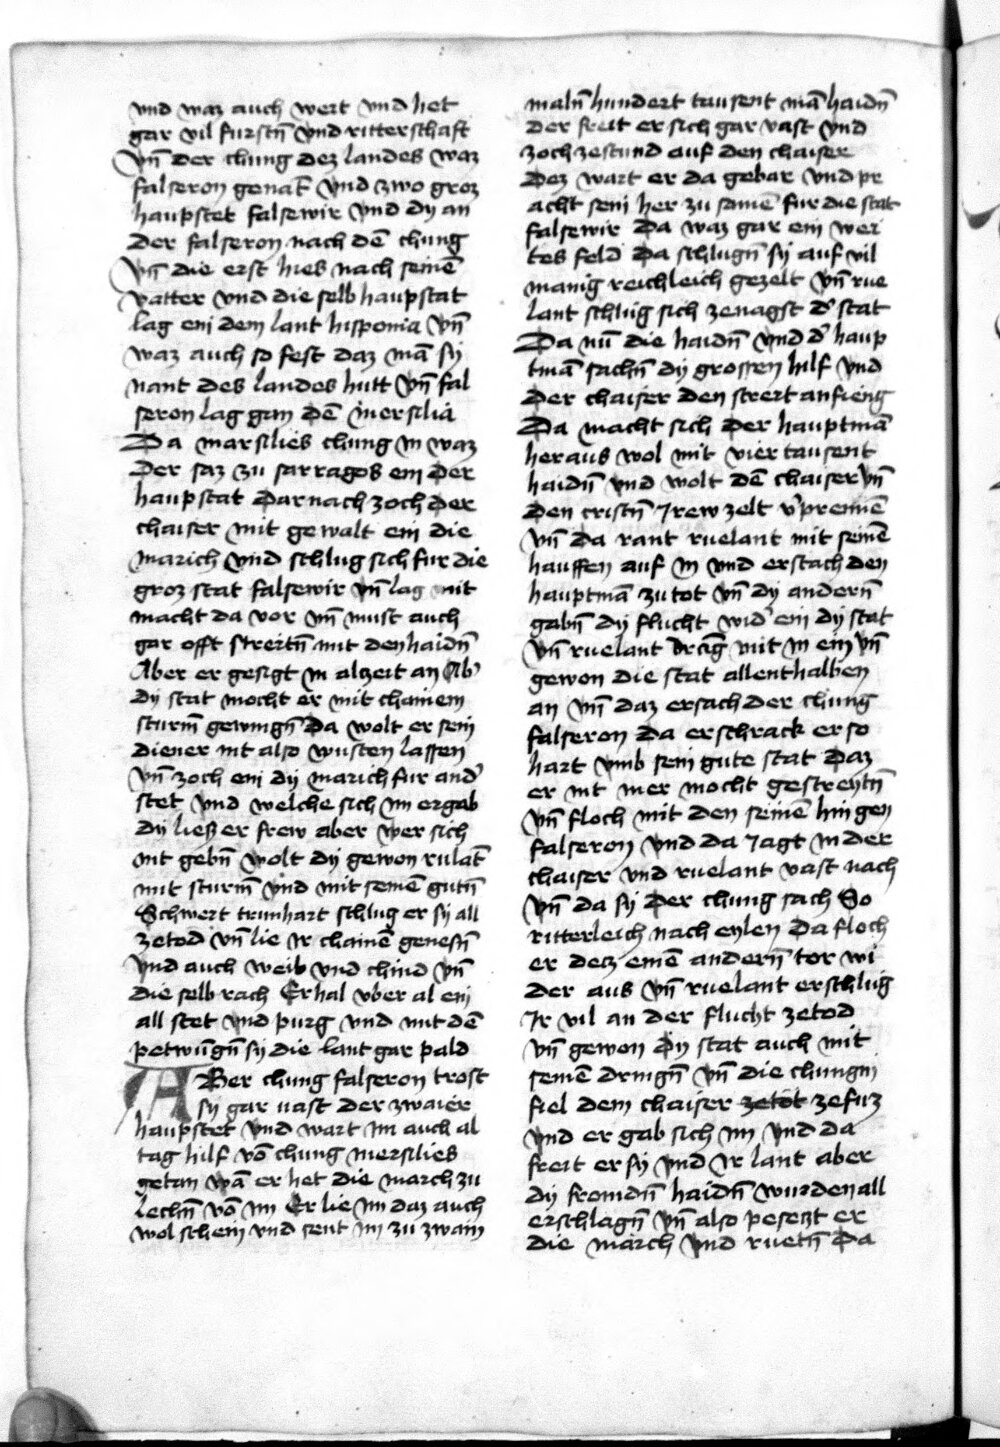 vnd waz auch wert vnd het
gar vil furstn̄ vnd ritterschaft
vn̄ der chung dez landes waz
falseron genāt vnd zwo groz
haupstet falsewir vnd dy an
der falseron nach dē chung
vn̄ die erst hies nach seinē
vatter vnd die selb haupstat
lag eni dem lant hisponia vn̄
waz auch so fest daz mā sy
nant des landes hutt vn̄ fal
seron lag gan dē mersiliā
Da marsilies chung in waz
der saz zu sarragos eni der
haupstat dar nach zoch der
chaiser mit gewalt eni die
marich vnd schlug sich fur die
groz stat falsewir vn̄ lag mit
macht da vor vn̄ must auch
gar offt streitn̄ mit den haidn̄
Aber er gesigt in alzeit an Ab̕
dy stat mocht er mit chainem
sturm̄ gewingn̄ Da wolt er seni
diener nit also wusten lassen
vn̄ zoch eni dy marich fur and̕
stet vnd welche sich im ergab
dy liesz er frew aber wer sich
nit gebn̄ wolt dy gewon rulāt
mit sturm̄ vnd mit seinē gutn̄
Schwert trunhart schlug er sy all
zetod vn̄ lie ir chainē genesn̄
vnd auch weib vnd chind vn̄
die selb rach Er hal vber al eni
all stet vnd purg vnd mit dē
petwūgn̄ sy die lant gar pald
ABer chung falseron trost
sy gar vast der zwaier
haupstet vnd wart im auch al
tag hilf vō chung mersilies
getan wā er het die march zu
lechn̄ vō im Er lie im daz auch
wol scheni vnd sent im zu zwain
maln̄ hundert tausent mā haidn̄
der freit er sich gar vast vnd
zoch zestund auf den chaiser
dez wart er da gebar vnd pr
acht seni her zu samē fur die stat
falsewir da waz gar eni wei
tes feld da schlugn̄ sy auf vil
manig reichleich gezelt vn̄ rue
lant schlug sich zenagst d̕ stat
Da nū die haidn̄ vnd d̕ haup
tmā sachn̄ dy grossen hilf vnd
der chaiser den streit anfieng
Da macht sich der hauptmā
heraus wol mit vier tausent
haidn̄ vnd wolt dē chaiser vn̄
den cristn̄ irew zelt v̕prennē
vn̄ da rant ruelant mit seinē
hauffen auf in vnd erstach den
hauptmā zu tot vn̄ dy andern̄
gabn̄ dy flucht wid̕ eni dy stat
vn̄ ruelant drāg mit in ein vn̄
gewon die stat allenthalben
an vn̄ daz ersach der chung
falseron da erschrack er so
hart vmb seni gute stat daz
er nit mer mocht gestreytn̄
vn̄ floch mit den seinē hin gen
falseron vnd da iagt in der
chaiser vnd ruelant vast nach
vn̄ da sy der chung sach So
ritterleich nach eylen Da floch
er dez einē andern̄ tor wi
der aus vn̄ ruelant erschlug
ir vil an der flucht zetod
vn̄ gewon dy stat auch mit
seinē dringn̄ vn̄ die chungin
fiel dem chaiser zetot zefuz
vnd er gab sich im vnd da
freit er sy vnd ir lant aber
dy fromdn̄ haidn̄ wurden all
erschlagn̄ vn̄ also peseczt er
die march vnd ruetn̄ Da